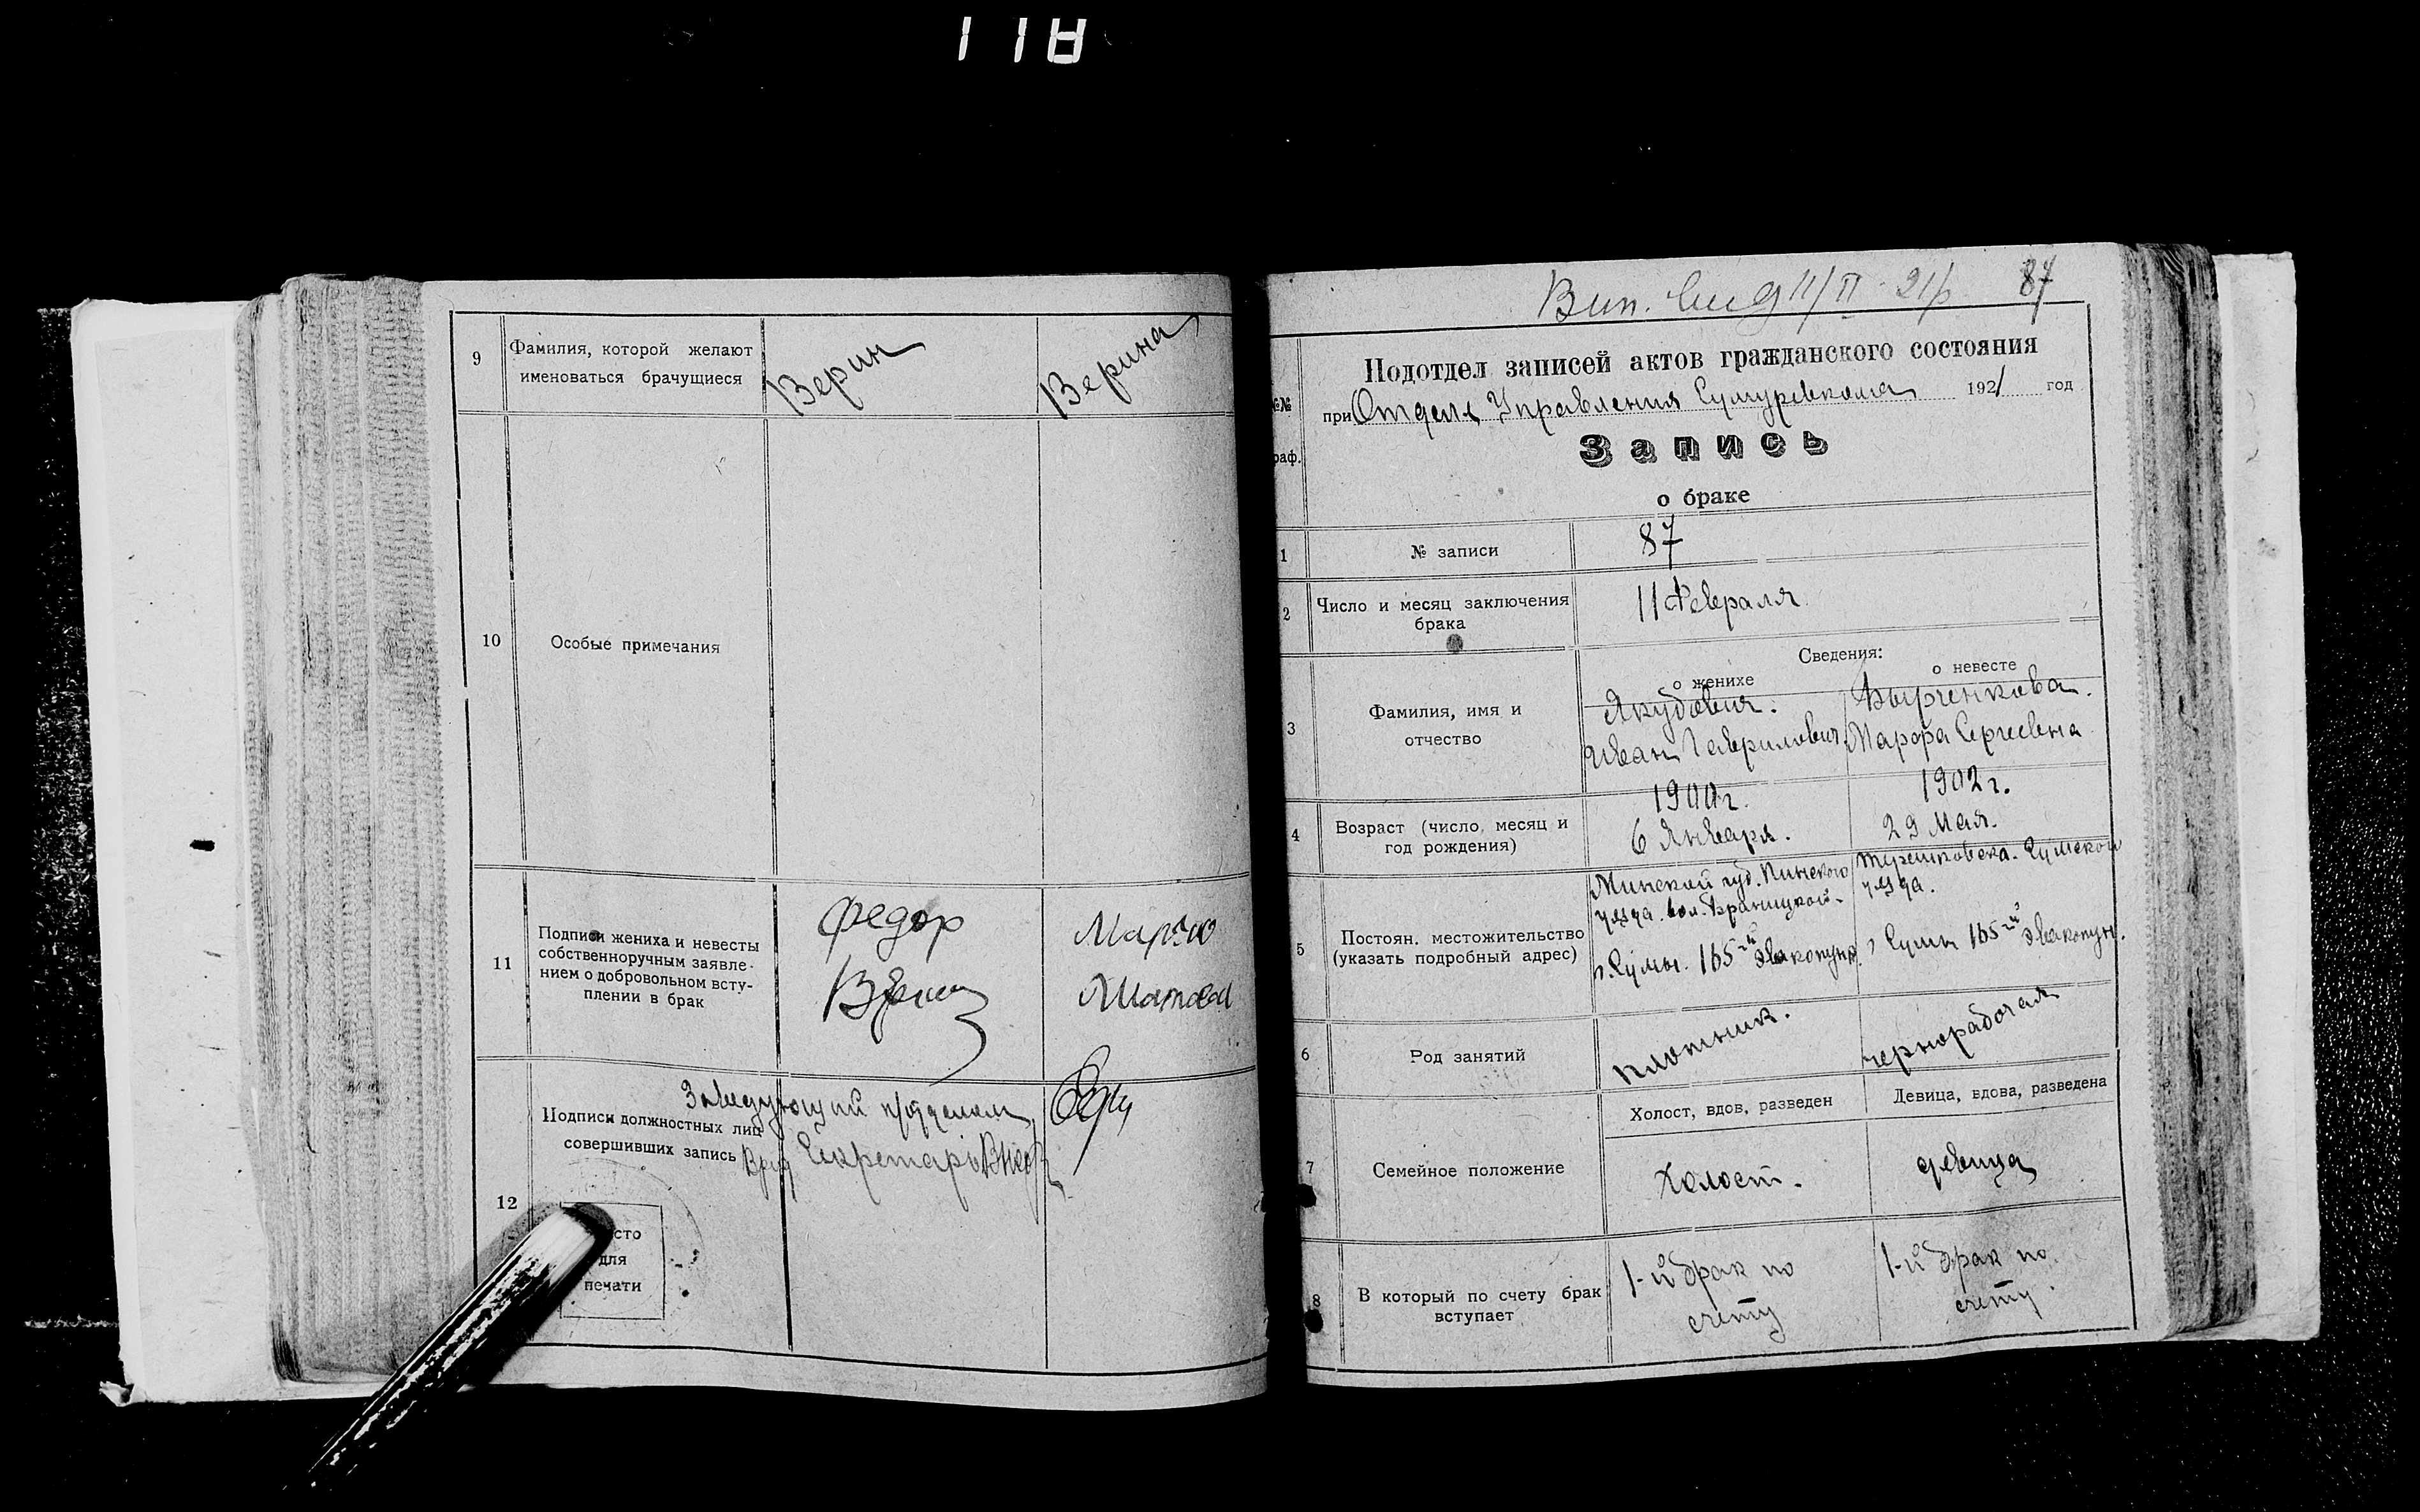 118
9
Фамилия, которой желают
именоваться брачущиеся
Верин
Верина
10
Особые примечания
11
Подписи жениха и невесты
собственноручным заявле-
нием о добровольном всту-
плении в брак
Федор
Марию
12
Подписи должностных лиц
совершивших запись
Заведующий п/отделом
Врид Секретарь
сто
для
печати
Вип. 11/II 21 р. 87
№№
раф.
Подотдел записей актов гражданского состояния
при Отделе Управления Сумуревкома 1921 год
Запись
о браке
1
№ записи
87
2
Число и месяц заключения
брака
11 Февраля
Сведения:
о женихе
о невесте
3
Фамилия, имя и
отчество
Якубович.
Иван Гаврилович.
Марфа Сергеевна
4
Возраст (число, месяц и
год рождения)
1900 г.
6 Января.
1902 г.
29 Мая.
5
Постоян. местожительство
(указать подробный адрес)
Минской губ. Пинского
уезда. вол.
г. Сумы. 165-й эвакопунк.
Сумской
уезда.
г Сумы 165-й эвакопун.
6
Род занятий
плотник.
чернорабочая
7
Семейное положение
Холост, вдов, разведен
Девица, вдова, разведена
Холост.
девица
8
В который по счету брак
вступает
1-й брак по
счету
1-й брак по
счету